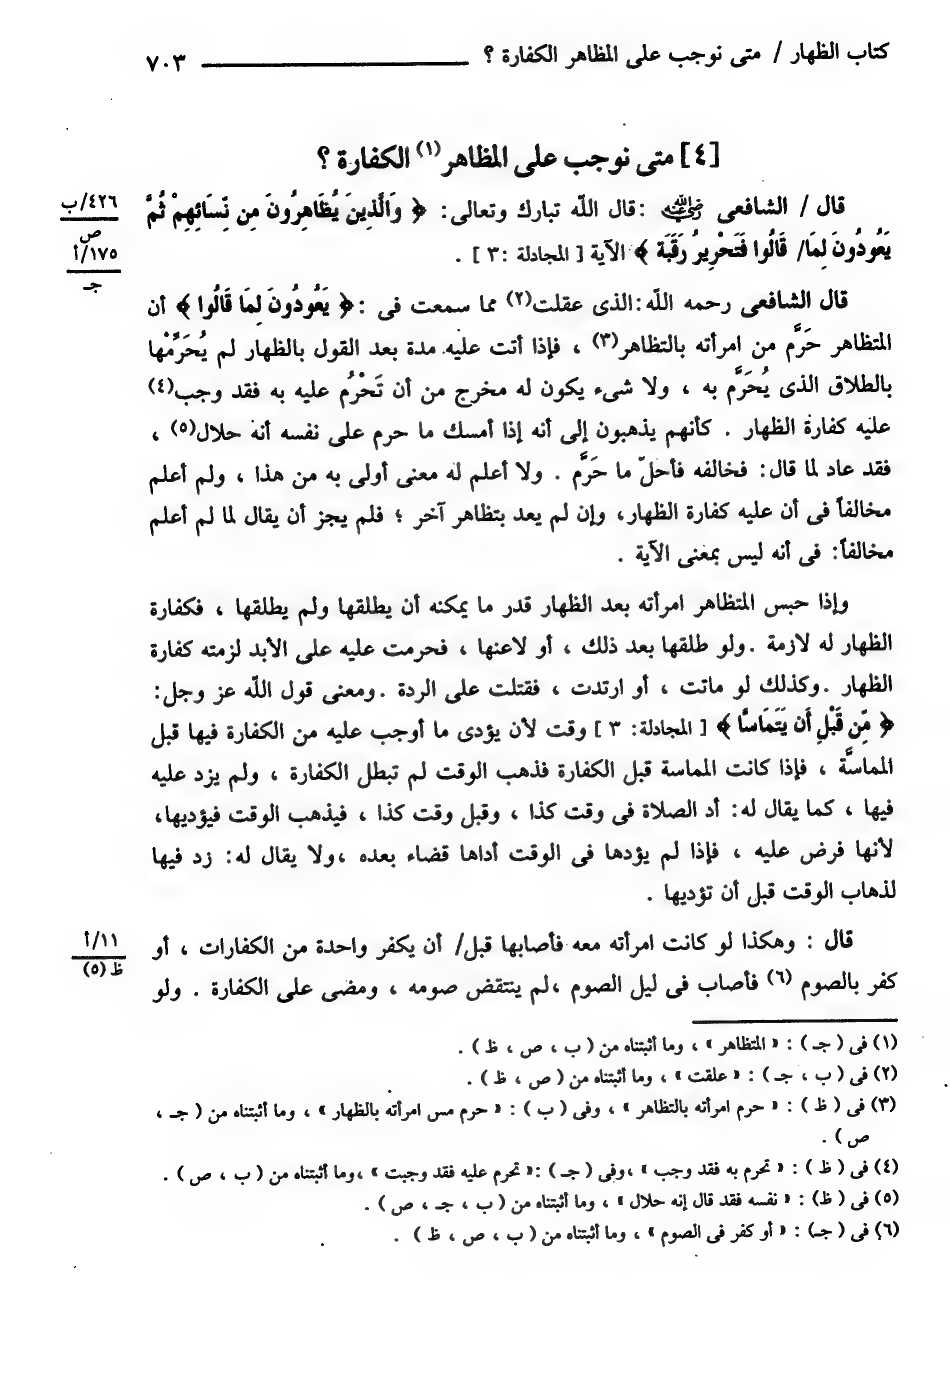 كتاب الظهار / متى نوجب على المظاهر الكفارة ؟ ٧٠٣
[٤] متى نوجب على المظاهر(١) الكفارة ؟
قال / الشافعى رضي الله عنه : قال الله تبارك وتعالى : ﴿ وَالَّذِينَ يُظَاهِرُونَ مِن نِّسَائِهِمْ ثُمَّ
٤٢٦/ب
ص
يَعُودُونَ لِمَا/ قَالُوا فَتَحْرِيرُ رَقَبَة ﴾ الآية [ المجادلة : ٣ ] .
١٧٥/أ
جـ
قال الشافعى رحمه الله : الذى عقلت(٢) مما سمعت فى : ﴿ يَعُودُونَ لِمَا قَالُوا ﴾ أن
المتظاهر حَرَّم من امرأته بالتظاهر(٣) ، فإذا أتت عليه مدة بعد القول بالظهار لم يُحَرِّمْها
بالطلاق الذى يُحَرَّم به ، ولا شىء يكون له مخرج من أن تَحْرُم عليه به فقد وجب(٤)
عليه كفارة الظهار . كأنهم يذهبون إلى أنه إذا أمسك ما حرم على نفسه أنه حلال(٥) ،
فقد عاد لما قال : فخالفه فأحلّ ما حَرَّم . ولا أعلم له معنى أولى به من هذا ، ولم أعلم
مخالفاً فى أن عليه كفارة الظهار، وإن لم يعد بتظاهر آخر ؛ فلم يجز أن يقال لما لم أعلم
مخالفاً : فى أنه ليس بمعنى الآية .
وإذا حبس المتظاهر امرأته بعد الظهار قدر ما يمكنه أن يطلقها ولم يطلقها ، فكفارة
الظهار له لازمة . ولو طلقها بعد ذلك ، أو لاعنها ، فحرمت عليه على الأبد لزمته كفارة
الظهار . وكذلك لو ماتت ، أو ارتدت ، فقتلت على الردة . ومعنى قول الله عز وجل :
﴿ مِّن قَبْلِ أَن يَتَمَاسَّا ﴾ [ المجادلة: ٣ ] وقت لأن يؤدى ما أوجب عليه من الكفارة فيها قبل
المماسَّة ، فإذا كانت المماسة قبل الكفارة فذهب الوقت لم تبطل الكفارة ، ولم يزد عليه
فيها ، كما يقال له : أد الصلاة فى وقت كذا ، وقبل وقت كذا ، فيذهب الوقت فيؤديها،
لأنها فرض عليه ، فإذا لم يؤدها فى الوقت أداها قضاء بعده ،ولا يقال له : زد فيها
لذهاب الوقت قبل أن تؤديها .
قال : وهكذا لو كانت امرأته معه فأصابها قبل/ أن يكفر واحدة من الكفارات ، أو
١١/أ
ظ(٥)
كفر بالصوم (٦) فأصاب فى ليل الصوم ،لم ينتقض صومه ، ومضى على الكفارة . ولو
(١) فى ( جـ ) : « المتظاهر » ، وما أثبتناه من ( ب ، ص ، ظ ) .
(٢) فى ( ب ، جـ ) : « علقت » ، وما أثبتناه من ( ص ، ظ ) .
(٣) فى ( ظ ) : « حرم امرأته بالتظاهر » ، وفى ( ب ) : « حرم مس امرأته بالظهار » ، وما أثبتناه من ( جـ ،
ص ) .
(٤) فى ( ظ ) : « تحرم به فقد وجب » ،وفى ( جـ ) :« تحرم عليه فقد وجبت » ،وما أثبتناه من ( ب ، ص ) .
(٥) فى ( ظ) : « نفسه فقد قال إنه حلال » ، وما أثبتناه من ( ب ، جـ ، ص ) .
(٦) فى ( جـ) : « أو كفر فى الصوم » ، وما أثبتناه من ( ب ، ص ، ظ ) .